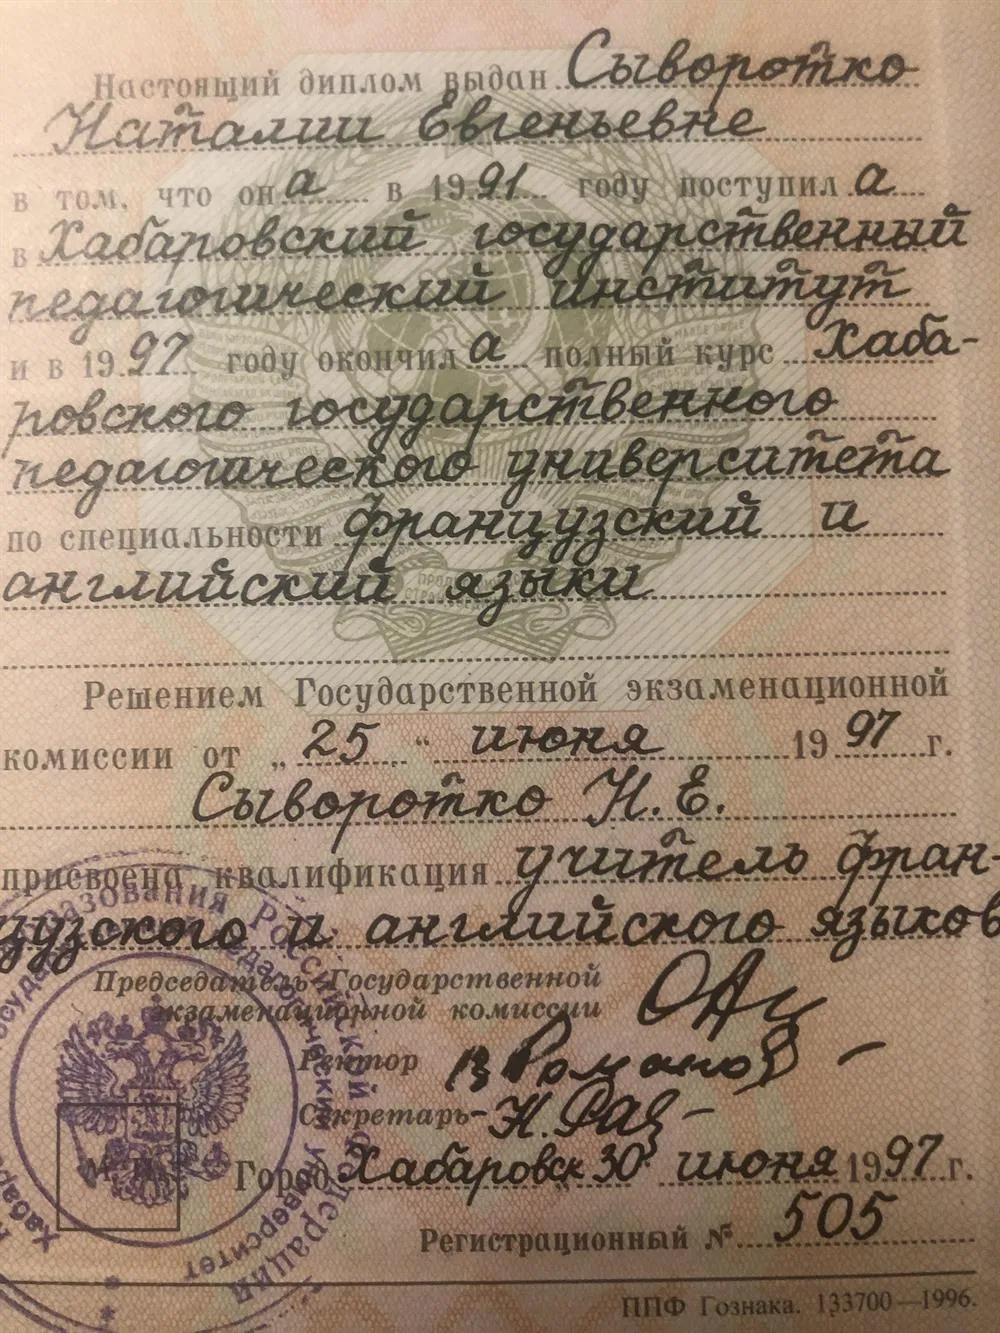 Настоящий диплом выдан Сыворотко
Наталии Евгеньевне
в том, что она в 1991 году поступила
в Хабаровский государственный
педагогический институт
и в 1997 году окончила полный курс Хаба-
ровского государственного
педагогического университета
по специальности французский и
английский языки
Решением Государственной экзаменационной
комиссии от „25“ июня 1997 г.
Сыворотко Н. Е.
присвоена квалификация учитель фран-
цузского и английского языков
Председатель Государственной
экзаменационной комиссии
Ректор В Романов
Секретарь
М. П.
Город Хабаровск 30 июня 1997 г.
Регистрационный № 505
ППФ Гознака. 133700—1996.
образования Российской Федерации
педагогический университет